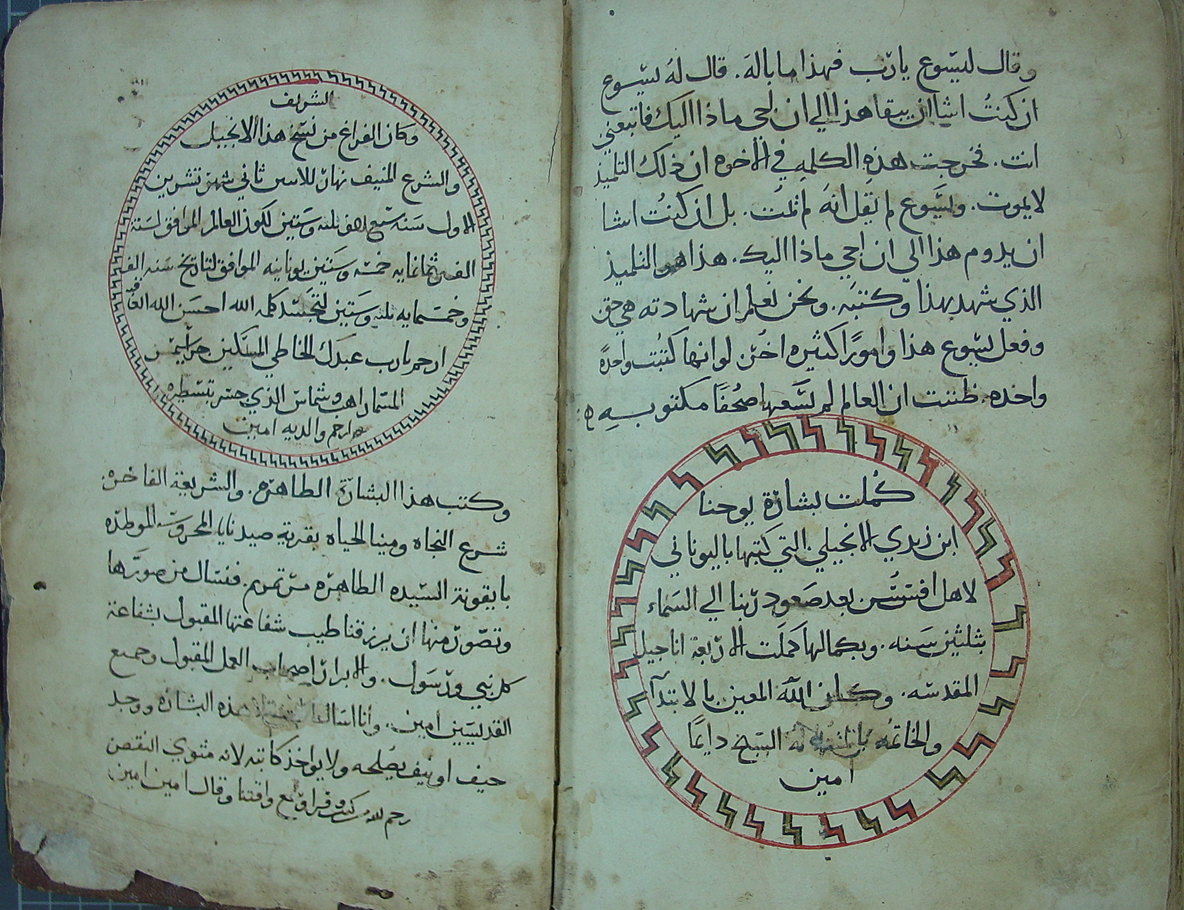 وقال ليسوع يا رب فهذا ما باله. قال له يسوع
ان كنتُ اشا ان يبقا هذا الي ان اجي ماذا اليك فاتبعني
انت. فخرجت هذه الكلمه في الاخوه ان ذلك التلميذ
لا يموت. ويسوع لم يقل انه لم يمت. بل ان كنت اشا
ان يدوم هذا الى ان اجي ماذا اليك. هذا هو التلميذ
الذي شهد بهذا وكتبه. ونحن نعلم ان شهادته هي حق
وفعل يسوع هذا وامورًا كثيره اخر لو انها كتبت واحدة
واحده. ظننت ان العالم لم يسعها صحُفًا مكتوبه
كمُلت بشارة يوحنا
ابن زبدي الانجيلي التي كتبها باليوناني
لاهل افسس بعد صَعود ربنا الي السَماء
بثلثين سَنه. وبكمالها كملَت الاربعة اناجيل
المقدسه. الله المعين بالابتدآ
والخاتمه السبح دايمًا
امين
الشريف
وكان الفراغ من نسخ هذا الانجيل
والشرع المنيف نهار الاثنين ثاني شهر تشرين
الاول سَنه سَبع الاف ثلثه وسَتين لكون العالم الموافق لسَنة
الف وثمانمايه خمسَه وسَتين يونانيه الموافق لتاريخ سَنه الف
وخمسَمايه ثلثه وسَتين لتجسَد كلمة الله احسَن الله
ارحم يارب عبدك الخاطي المسَكين جرجس
وشماس الذي
وارحم والديه امين
وكتب هذا البشارة الطاهره. والشريعة الفاخره
شرع النجاه ومينا الحياه بقرية صيدنايا المحروسَه الموطده
بايقونة السَيده الطاهره مرتمريم. فنسَال من صوَرَها
وتصَوّر منها ان يرزقنا طيب شفاعتها المقبول بشفاعة
كل نبي ورسَول. والابرار اصحاب العمل المقبول وجميع
القديسَين امين. وانا اسَال هذه البشاره ووجد
حيف او يصُلحه ولا يواخذ كاتبه لانه النقص
رحم الله وقال امين امين